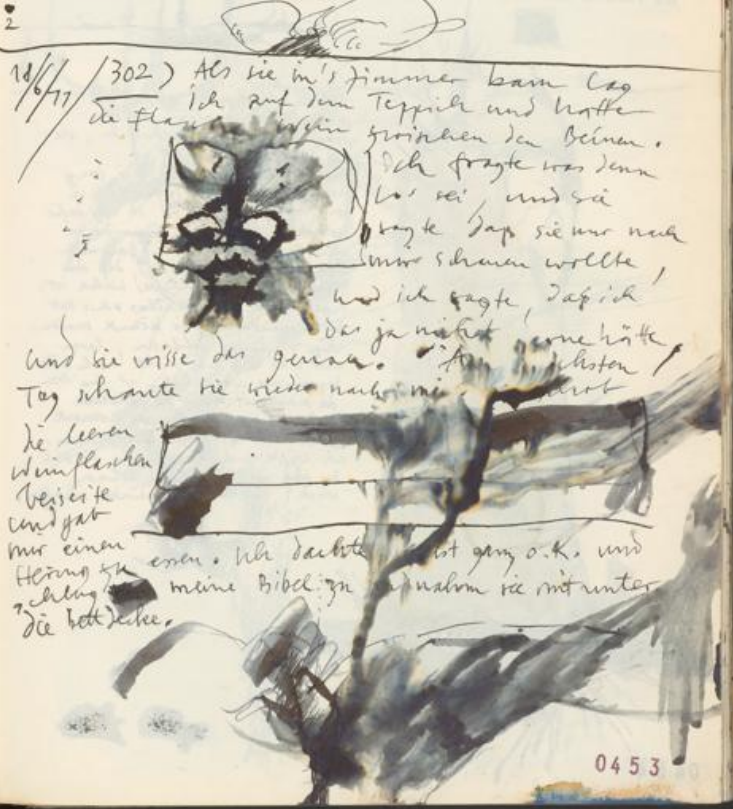 2
18/6/77 / 302) Als sie in's Zimmer kam lag
ich auf dem Teppich und hatte
die Flasche Wein zwischen den Beinen.
Ich fragte was denn
los sei, und sie
sagte daß sie nur nach
mir schauen wollte,
und ich sagte, daß ich
das ja nicht gerne hätte,
und sie wisse das genau. Am nächsten
Tag schaute sie wieder nach mir
die leeren
Weinflaschen
beiseite
und gab
mir einen
Hering zu essen. Ich dachte ist ganz o.k. und
schlug meine Bibel zu und nahm sie mit unter
die bettdecke.
0453